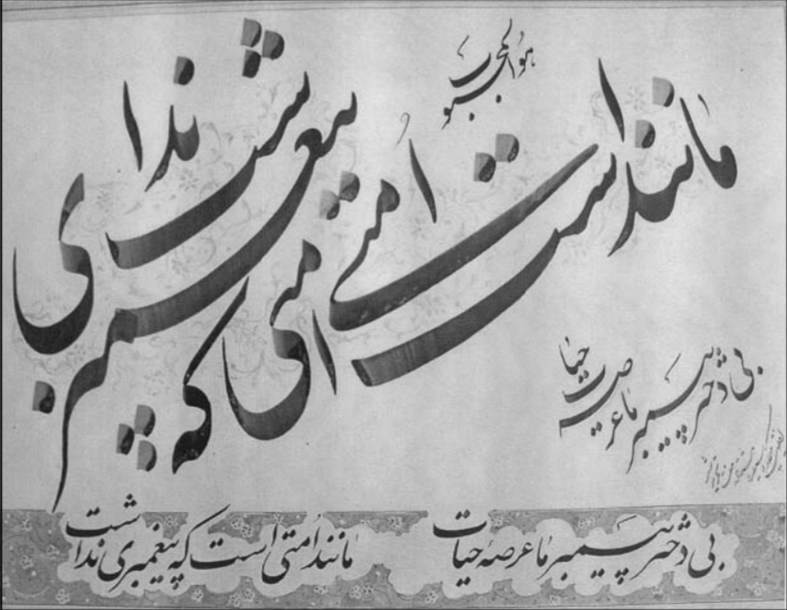 هوالمحبوب
مانند امتی است که پیغمبری نداشت
بی دختر پیمبر ما عرصه حیات
بی دختر پیمبر ما عرصهٔ حیات
مانند اُمتی است که پیغمبری نداشت